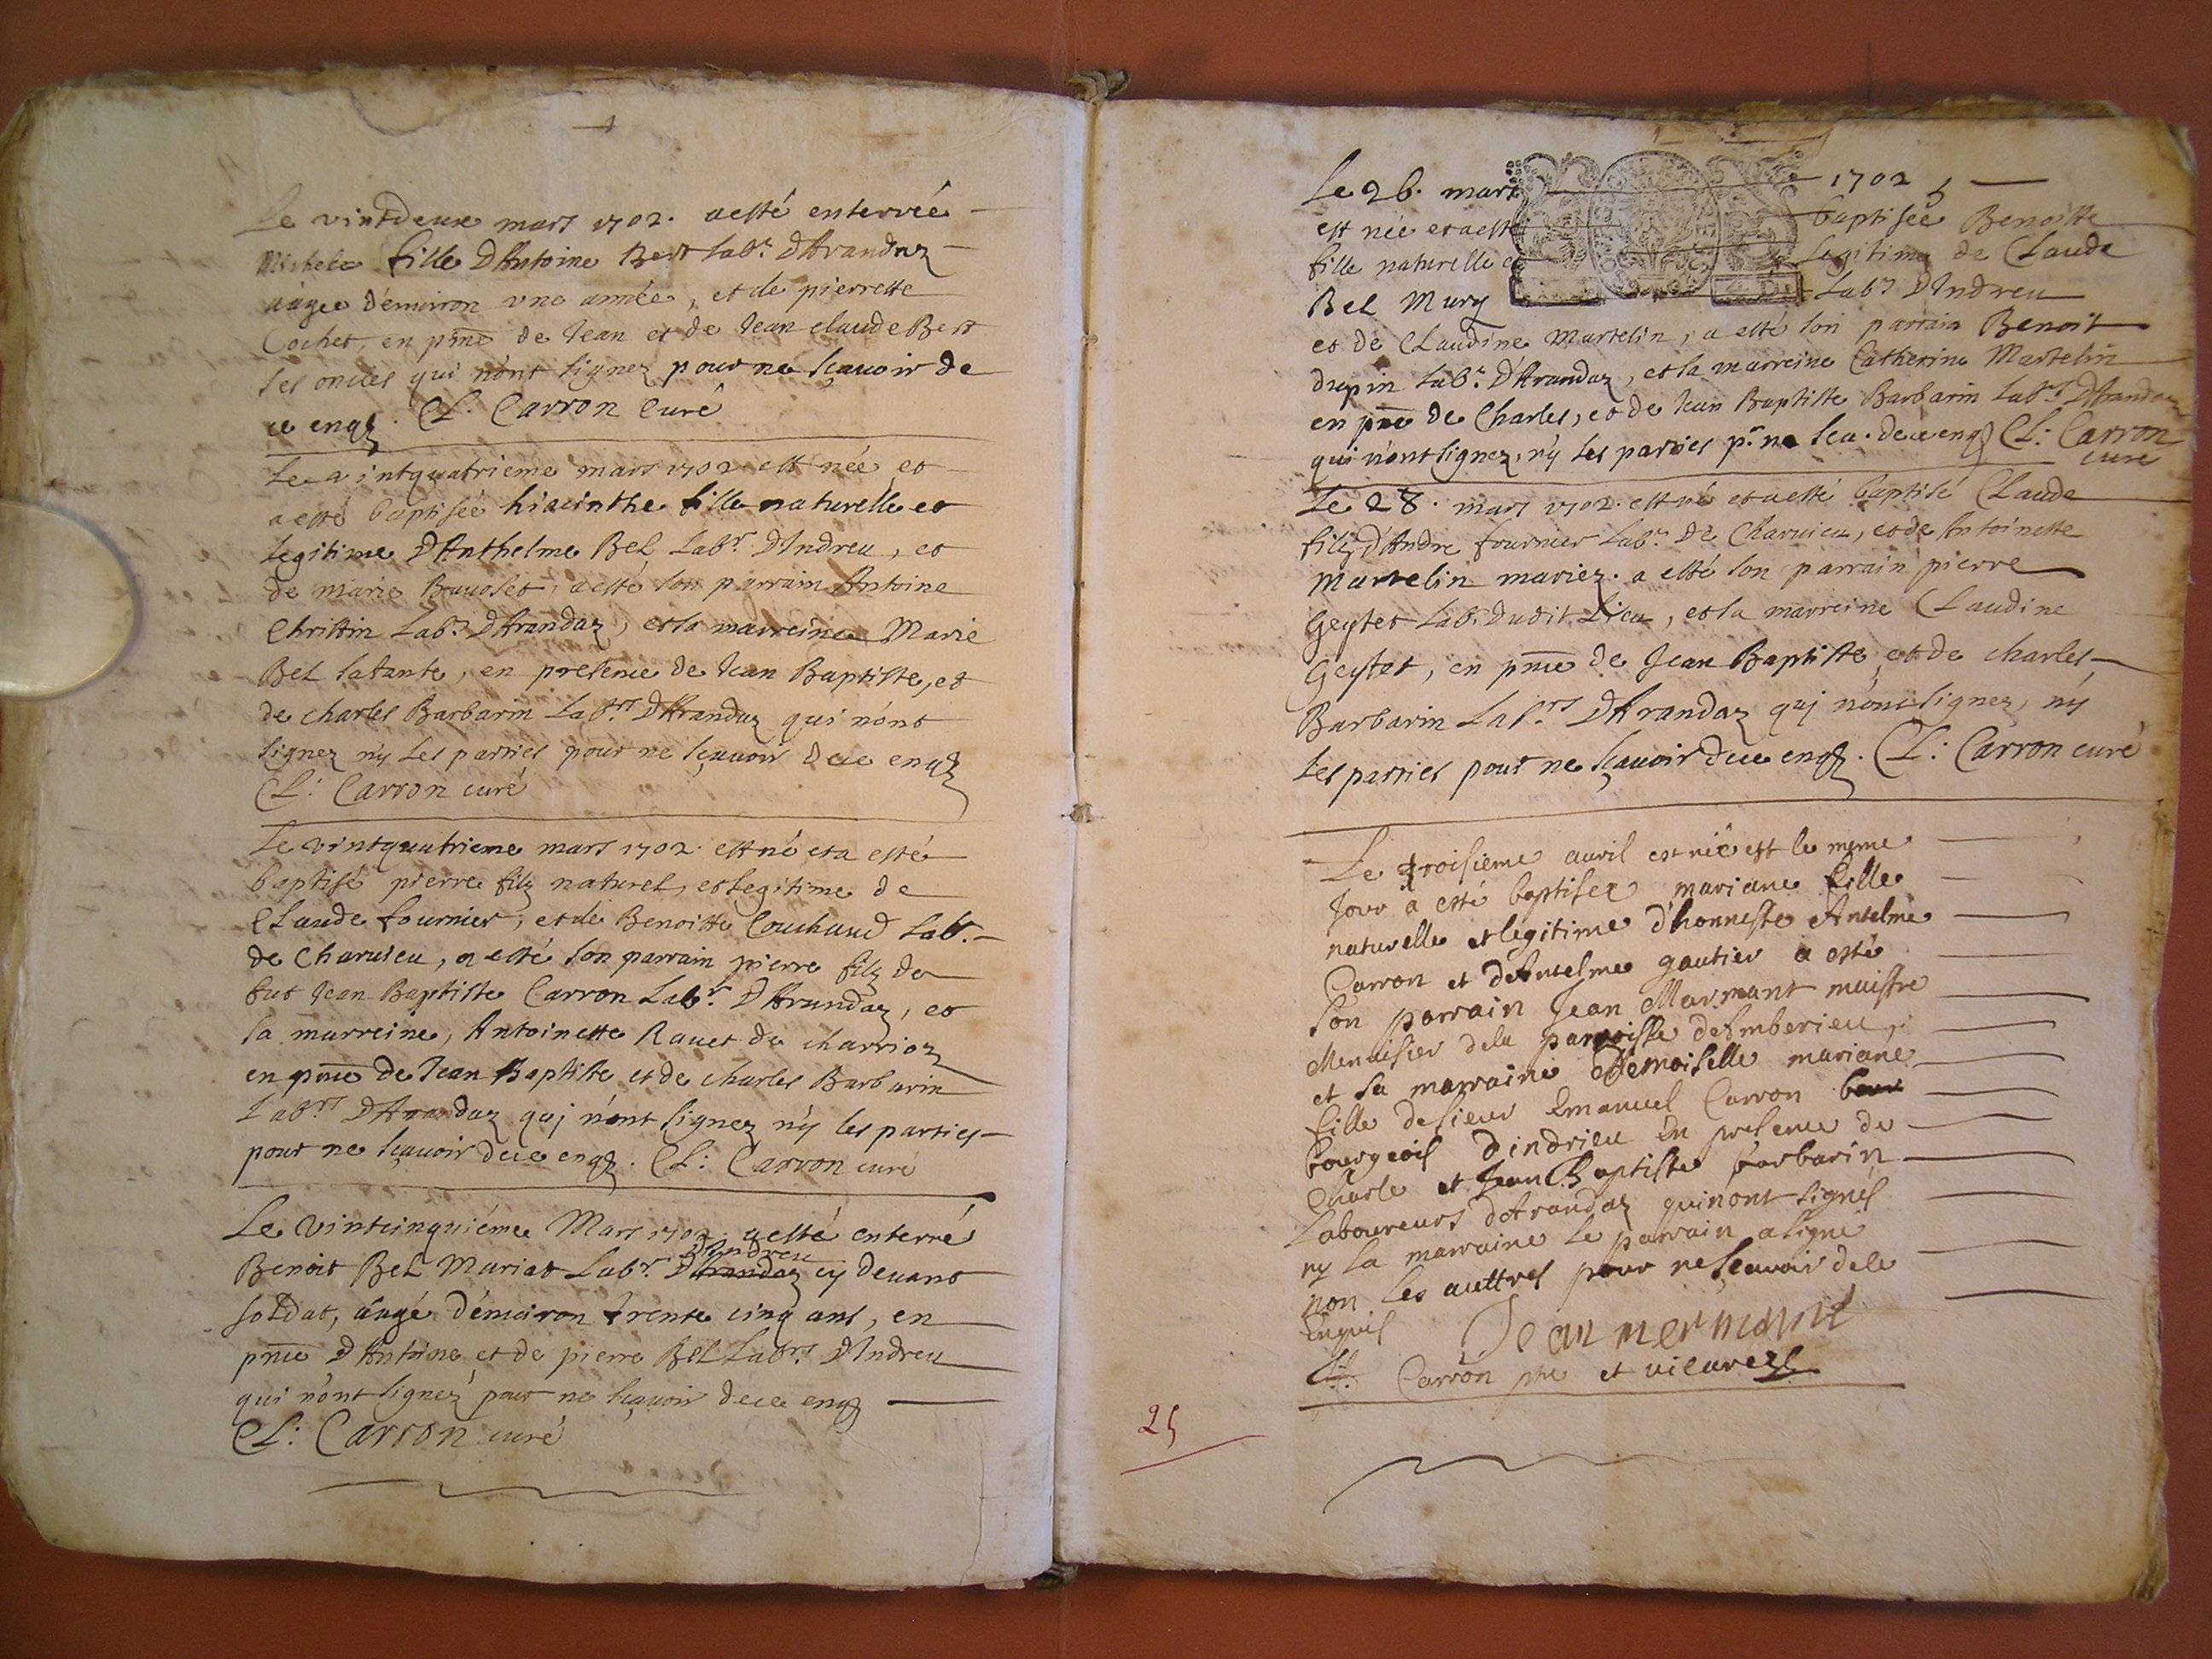 Le vintdeux mars 1702. a esté enterreé
Michele fille D'Antoine Best Labr. D'Arandaz
aagee d'environ une année, et de pierrette
Cochet, en pnce de Jean et de Jean claude Best
ses oncles qui n'ont signez pour ne sçavoir de
ce enqs. Cl. Carron Curé
Le vintquatrieme mars 1702 est née, et
a esté baptiseé hiacinthe fille naturelle et
legitime D'Anthelme Bel Labr. D'Indreu, et
de marie Bavolet, a esté son parrain Antoine
Christin Labr. D'Arandaz, et sa marreine Marie
Bel sa tante, en presence de Jean Baptiste, et
de charles Barbarin Labrs. D'Arandaz qui n'ont
signez n'y les parties pour ne sçavoir de ce enqs
Cl: Carron curé
Le vintquatrieme mars 1702. est né et a esté
baptisé pierre filz naturel, et legitime de
Claude fournier, et de Benoitte Couchaud Labr.
de Charvieu, a esté son parrain pierre filz de
fut Jean Baptiste Carron Labr. D'Arandaz, et
sa marreine, Antoinette Ravet de charrioz
en pnce de Jean Baptiste et de charles Barbarin
Labrs D'Arandaz qui n'ont signez n'y les parties
pour ne sçavoir de ce enqs. Cl: Carron curé
Le Vintcinquiéme Mars 1702. a esté enterré
D'Indreu
Benoit Bel Muriat Labr. D'Arandaz cy devant
soldat, aagé d'environ trente cinq ans, en
pnce D'Antoine et de pierre Bel Labrs. D'Indreu
qui n'ont signez pour ne sçavoir de ce enqs
Cl: Carron curé
Le 26. mars 1702
est née et a esté baptiseé Benoitte
fille naturelle et legitime de Claude
Bel Mury Labr D'Indreu
et de Claudine Martelin, a esté son parrain Benoit
dupin Labr. D'Arandaz, et sa marreine Catherine Martelin
en pnce de Charles, et de Jean Baptiste Barbarin Labrs D'Arandaz
qui n'ont signez, n'y les parties pr. ne scu. de ce enqs Cl: Carron
curé
Le 28. mars 1702. est né et a esté baptisé Claude
filz d'Andre fournier Labr. De Charvieu, et de Antoinette
Martelin mariez. a esté son parrain pierre
Geytet Labr. Dudit Lieu, et sa marreine Claudine
Geytet, en pnce de Jean Baptiste et de charles
Barbarin Labrs D'Arandaz qui n'ont signez, n'y
les parties pour ne sçavoir de ce enqs. Cl: Carron curé
Le troisieme avril est néé est le meme
Jour a esté baptisee mariane fille
naturelle et legitime d'honneste Antelme
Carron et d'Antelme gautier a esté
son parrain Jean Marmant maistre
Menuisier de la parroisse d'Emberieu
et sa marraine Demoiselle mariane
fille de sieur Emanuel Carron bour
bourgeois d'indrieu En presence de
Charle et Jean Baptiste barbarin
Laboureurs d'Arandaz qui n'ont signés
ny la marraine le parrain a signé
non les auttres pour ne sçavoir de le
Enquis Jean mermant
Cl. Carron ptre et vicaire
25